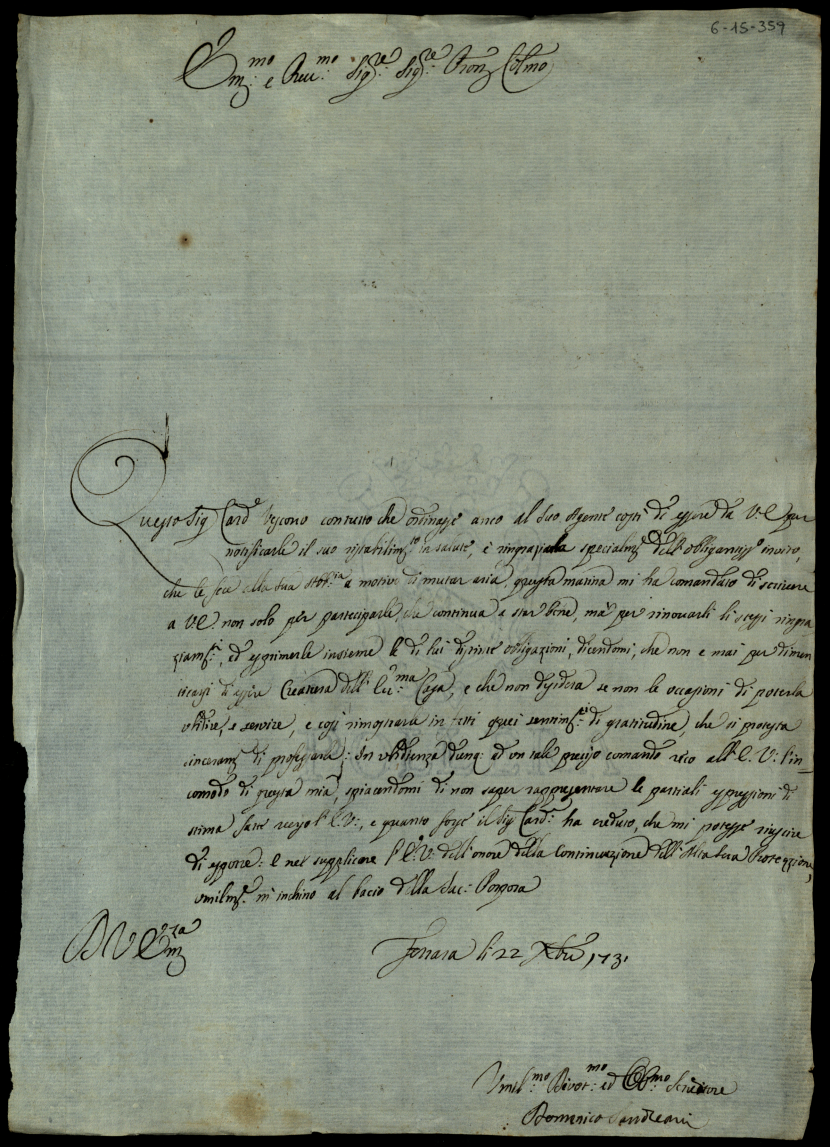 6-15-359
Em:mo e Rev:mo Sig:re Sig:re Pron Col:mo
Questo Sig Card:e Vescovo contutto che ordinasse anco al Suo Agente costì di essere da V: E per
notificarle il suo ristabilim:to in salute, e ringraziarla specialm:te dell' obligantiss:o invito,
che le fece alla sua a motivo di mutar aria, questa matina mi ha comandato di scrivere
a V.E. non solo per parteciparle, che continua a star bene, mà per rinovarli li stessi ringra
ziam:ti, ed esprimerle insieme le di lui distinte obligazioni, dicendomi, che non e mai per dimen
ticarsi di essere Creatura dell' Em:ma Casa, e che non desidera se non le occasioni di poterla
ubidire, e servire, e così rimostrarle in fatti quei sentim:ti di gratitudine, che si protesta
sinceram:te di professarle: In ubidienza dunq: ad un tale preciso comando reco all' E. V: l'in
comodo di questa mia, spiacendomi di non saper rappresentare le parziali espressioni di
stima fatte verso l' E. V:, e quanto forse il Sig Card:e ha creduto, che mi potesse riuscire
di esporre: E nel supplicare l' E: V: dell' onore della Continuazione dell' Alta Sua Protezzione,
umilm:te m' inchino al bacio della Sac: Porpora
D V Em:za
Ferrara li 22 Xbre 1731
Umil:mo Divot:mo ed Obl:mo Servitore
Domenico